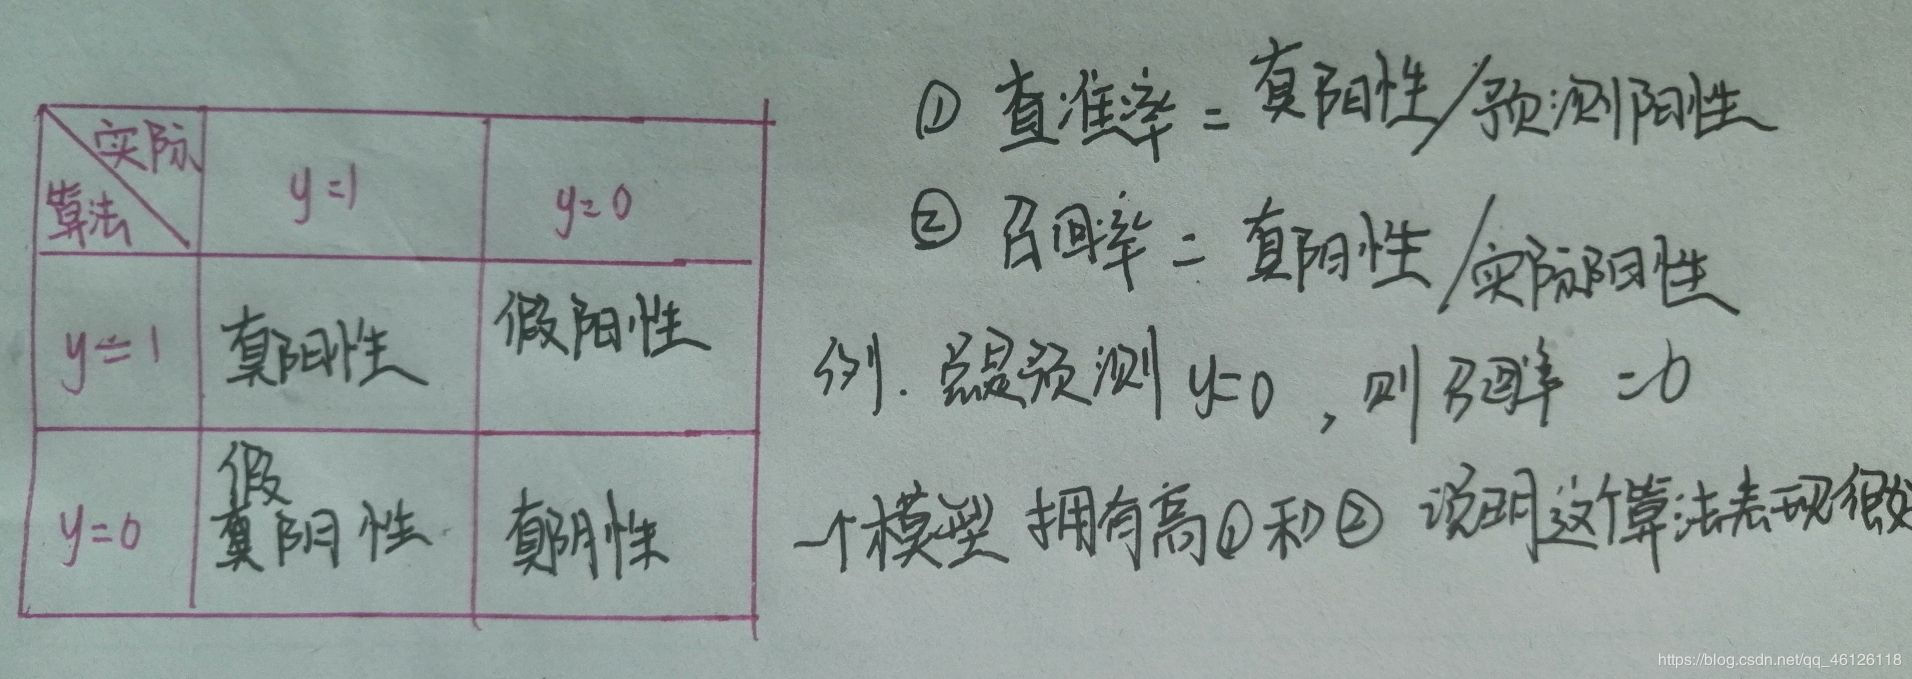 实际
算法
y=1
y=0
y=1
真阳性
假阳性
y=0
假
真阳性
真阴性
① 查准率 = 真阳性/预测阳性
② 召回率 = 真阳性/实际阳性
例. 总是预测 y=0 , 则召回率 =0
一个模型 拥有高①和② 说明这个算法表现很好
https://blog.csdn.net/qq_46126118